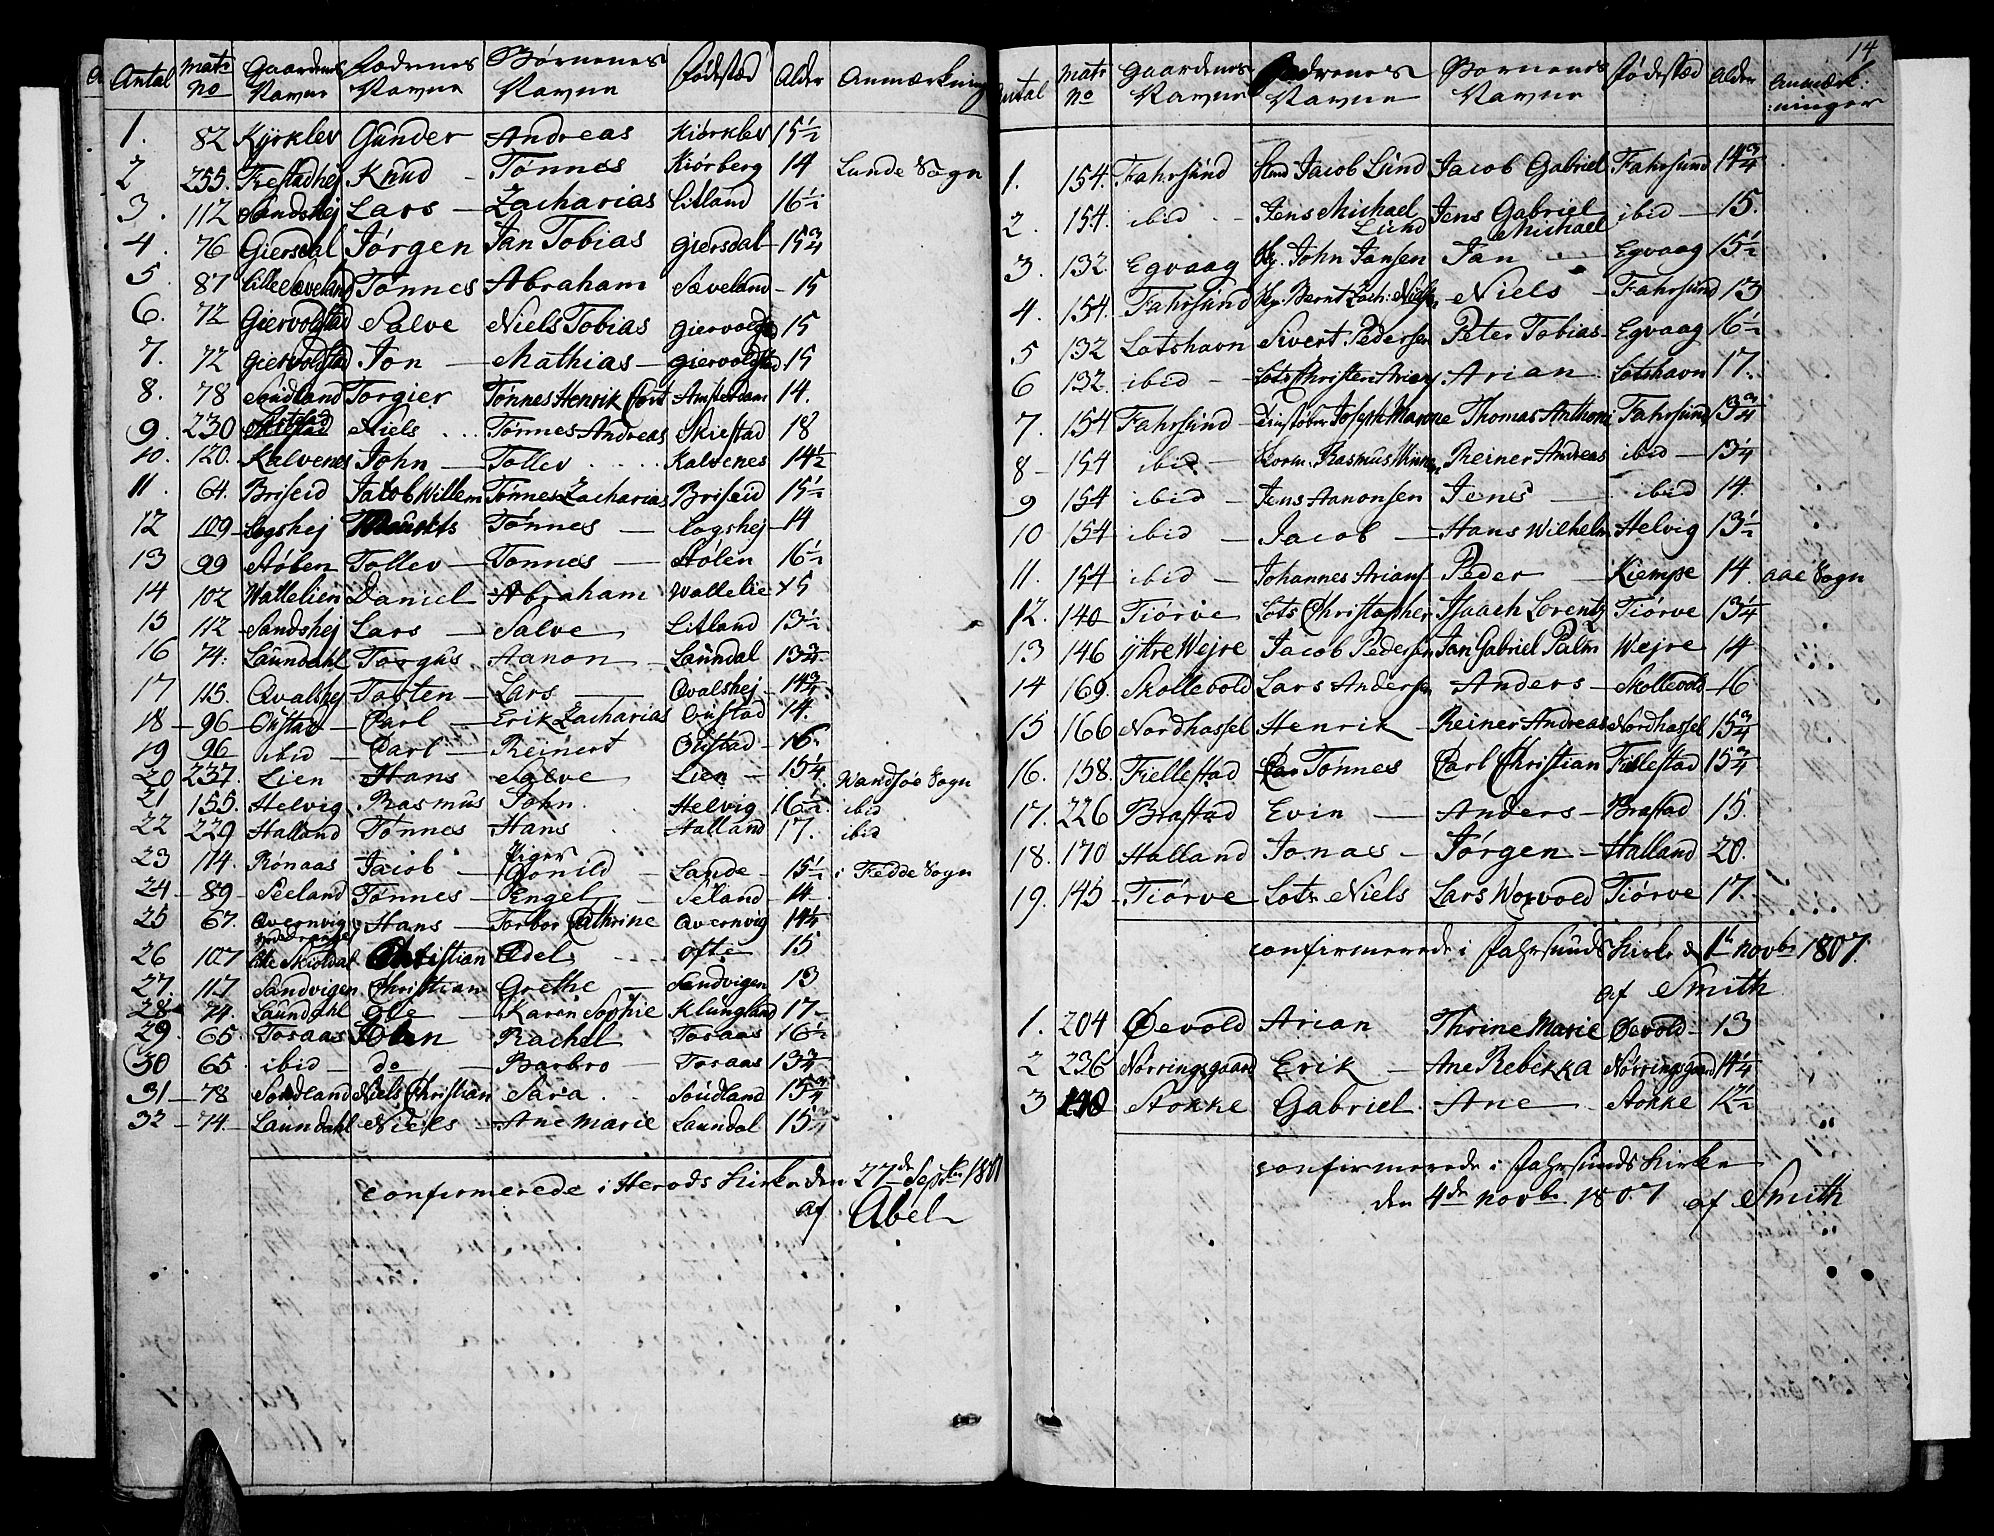 Antal matr: no Gaardenes Navne Fædrenes Navne Børnenes Navne fødestæd Alder Anmærkning
1. 82 Kyrklev Gunder Andreas Kiørklev 15½
2 255. Frestadhej Knud Tønnes Kiørberg 14 Lunde Sogn
3. 112 Sandshej Lars Zacharias Litland 16½
4. 76 Giersdal Jørgen Jan Tobias Giersdal 15¾
5. 87 Lille Sæveland Tønnes Abraham Sæveland 15
6. 72 Giervolstad Salve Niels Tobias Giervolst 15
7. 72 Giervolstad Jon Mathias Giervoldstd 15
8. 78 Sudland Torgier Tønnes Henrik Cort Amsterdam 14.
9. 230 Skiestad Niels Tønnes Andreas Skiestad 18
10. 120. Kalvenes John Tollev Kalvenes 14½
11. 64. Briseid Jacob Willem Tønnes Zacharias Briseid 15½
12 109 Logshej Tønnes Logshej 14
13 99 Stølen Tollev Tonnes Stølen 16½
14 102 Wattelien Daniel Abraham Wattelie 15
15 112 Sandshej Lars Salve Litland 13½
16 74. Laundahl Torgus Aanon Laundal 13¾
17 115. Qvalshej Tosten Lars Qvalshej 14¾
18 96 Oustad Carl Erik Zacharias Oustad 14.
19 96 ibid Carl Reinert Oustad 16.
20 237. Lien Hans Salve Lien 15¼ Wandsøe Sogn
21 155. Helvig Rasmus John Helvig 16½ ibid
22 229 Halland Tønnes Hans Halland 17. ibid
Piger
23 114. Rønaas Jacob Gonild Lande 15½ i Fedde Sogn
24 89 Seeland Tønnes Engel Seland 14
25 67. Qvernvig Hans Torbor Cathrine Qvernvig 14¼
26 107 Lille Skioldal Christian Edel ofte 15
27. 117 Sandvigen Christian Grethe Sandvigen 13
28 74. Laundahl Ole Karen Sophie Klungland 17
29. 65. Toraas Rachel Toraas 16½
30 65 ibid do Barbro Toraas 13¾
31 78 Sondland Niels Christian Sara Soudland 15¾
32 74. Laundahl Niels Ane Marie Laundal 15
confirmerede i Herods Kirke den 27de Septbr 1807
af Abel
14
Antal matr: no Gaardenes Navne Fædrenes Navne Børnenes Navne fødestæd Alder Anmærk:ninger
1. 154. Fahrsund Jacob Lund Jacob Gabriel Fahrsund 14¾
2. 154. ibid Jens Michael Lund Jens Gabriel Michael ibid 15.
3. 132. Egvaag John Jansen Jan Egvaag 15½
4. 154. Fahrsund Bernt Zach: Nielsen Niels Fahrsund 13
5 132 Lotshavn Sivert Pedersen Peter Tobias Egvaag 16½
6 132. ibid Lots Christen Arians Arian Lotshavn 17.
7. 154 Fahrsund Joseph Thomas Anthoni Fahrsund 13¾
8 154 ibid Rasmus Reiner Andreas ibid 13¼
9 154 ibid Jens Aanonsen Jens ibid 14.
10 154 ibid Jacob Hans Wilhelm Helvig 13½
11. 154 ibid Johannes Arians Peder Kiempe 14. aae Sogn
12. 140 Tiørve Lots Christopher Isaach Lorentz Tiørve 13¼
13 146 Yttre Wejre Jacob Pedersen Jan Gabriel Palm Wejre 14
14 169. Skollevold Lars Andersen Anders Skollevold 16
15 166 Nordhassel Henrik Reiner Andreas Nordhassel 15¾
16. 158. Fiellestad Tønnes Carl Christian Fiellestad 15¾
17. 226 Brastad Evin Anders Brastad 15.
18. 170 Halland Jonas Jørgen Halland 20.
19. 145 Tiørve Lots Niels Lars Worvold Tiørve 17.
confirmerede i Fahrsunds Kirke d 1te novbr 1807.
af Smith
1. 204 Øevold Arian Thrine Marie Øevold 13
2 236 Nørringsgaard Erik Ane Rebekka Nørringsgaard 14¼
3 Stokke Gabriel Ane Stokke 17½
confirmerede i Fahrsunds Kirke
den 4de novbr 1807 af Smith